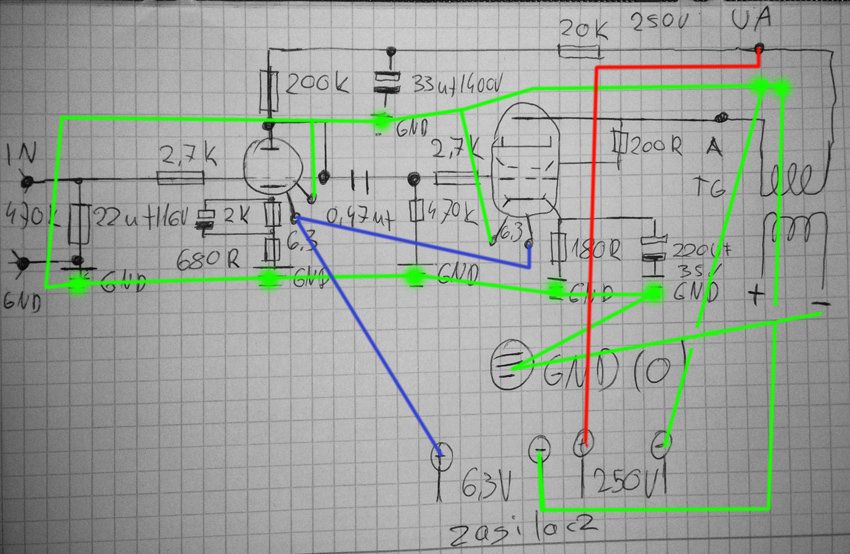 20K 250V UA
200K 33uf/400V
GND
IN 2,7K 2,7K 200R A
470K 22uf/16V 2K 0,47uf 470K TG
6,3 6,3 180R 220uf
680R 35V
GND GND GND GND GND GND + -
GND (0)
+ - + -
6,3V 250V
zasilacz